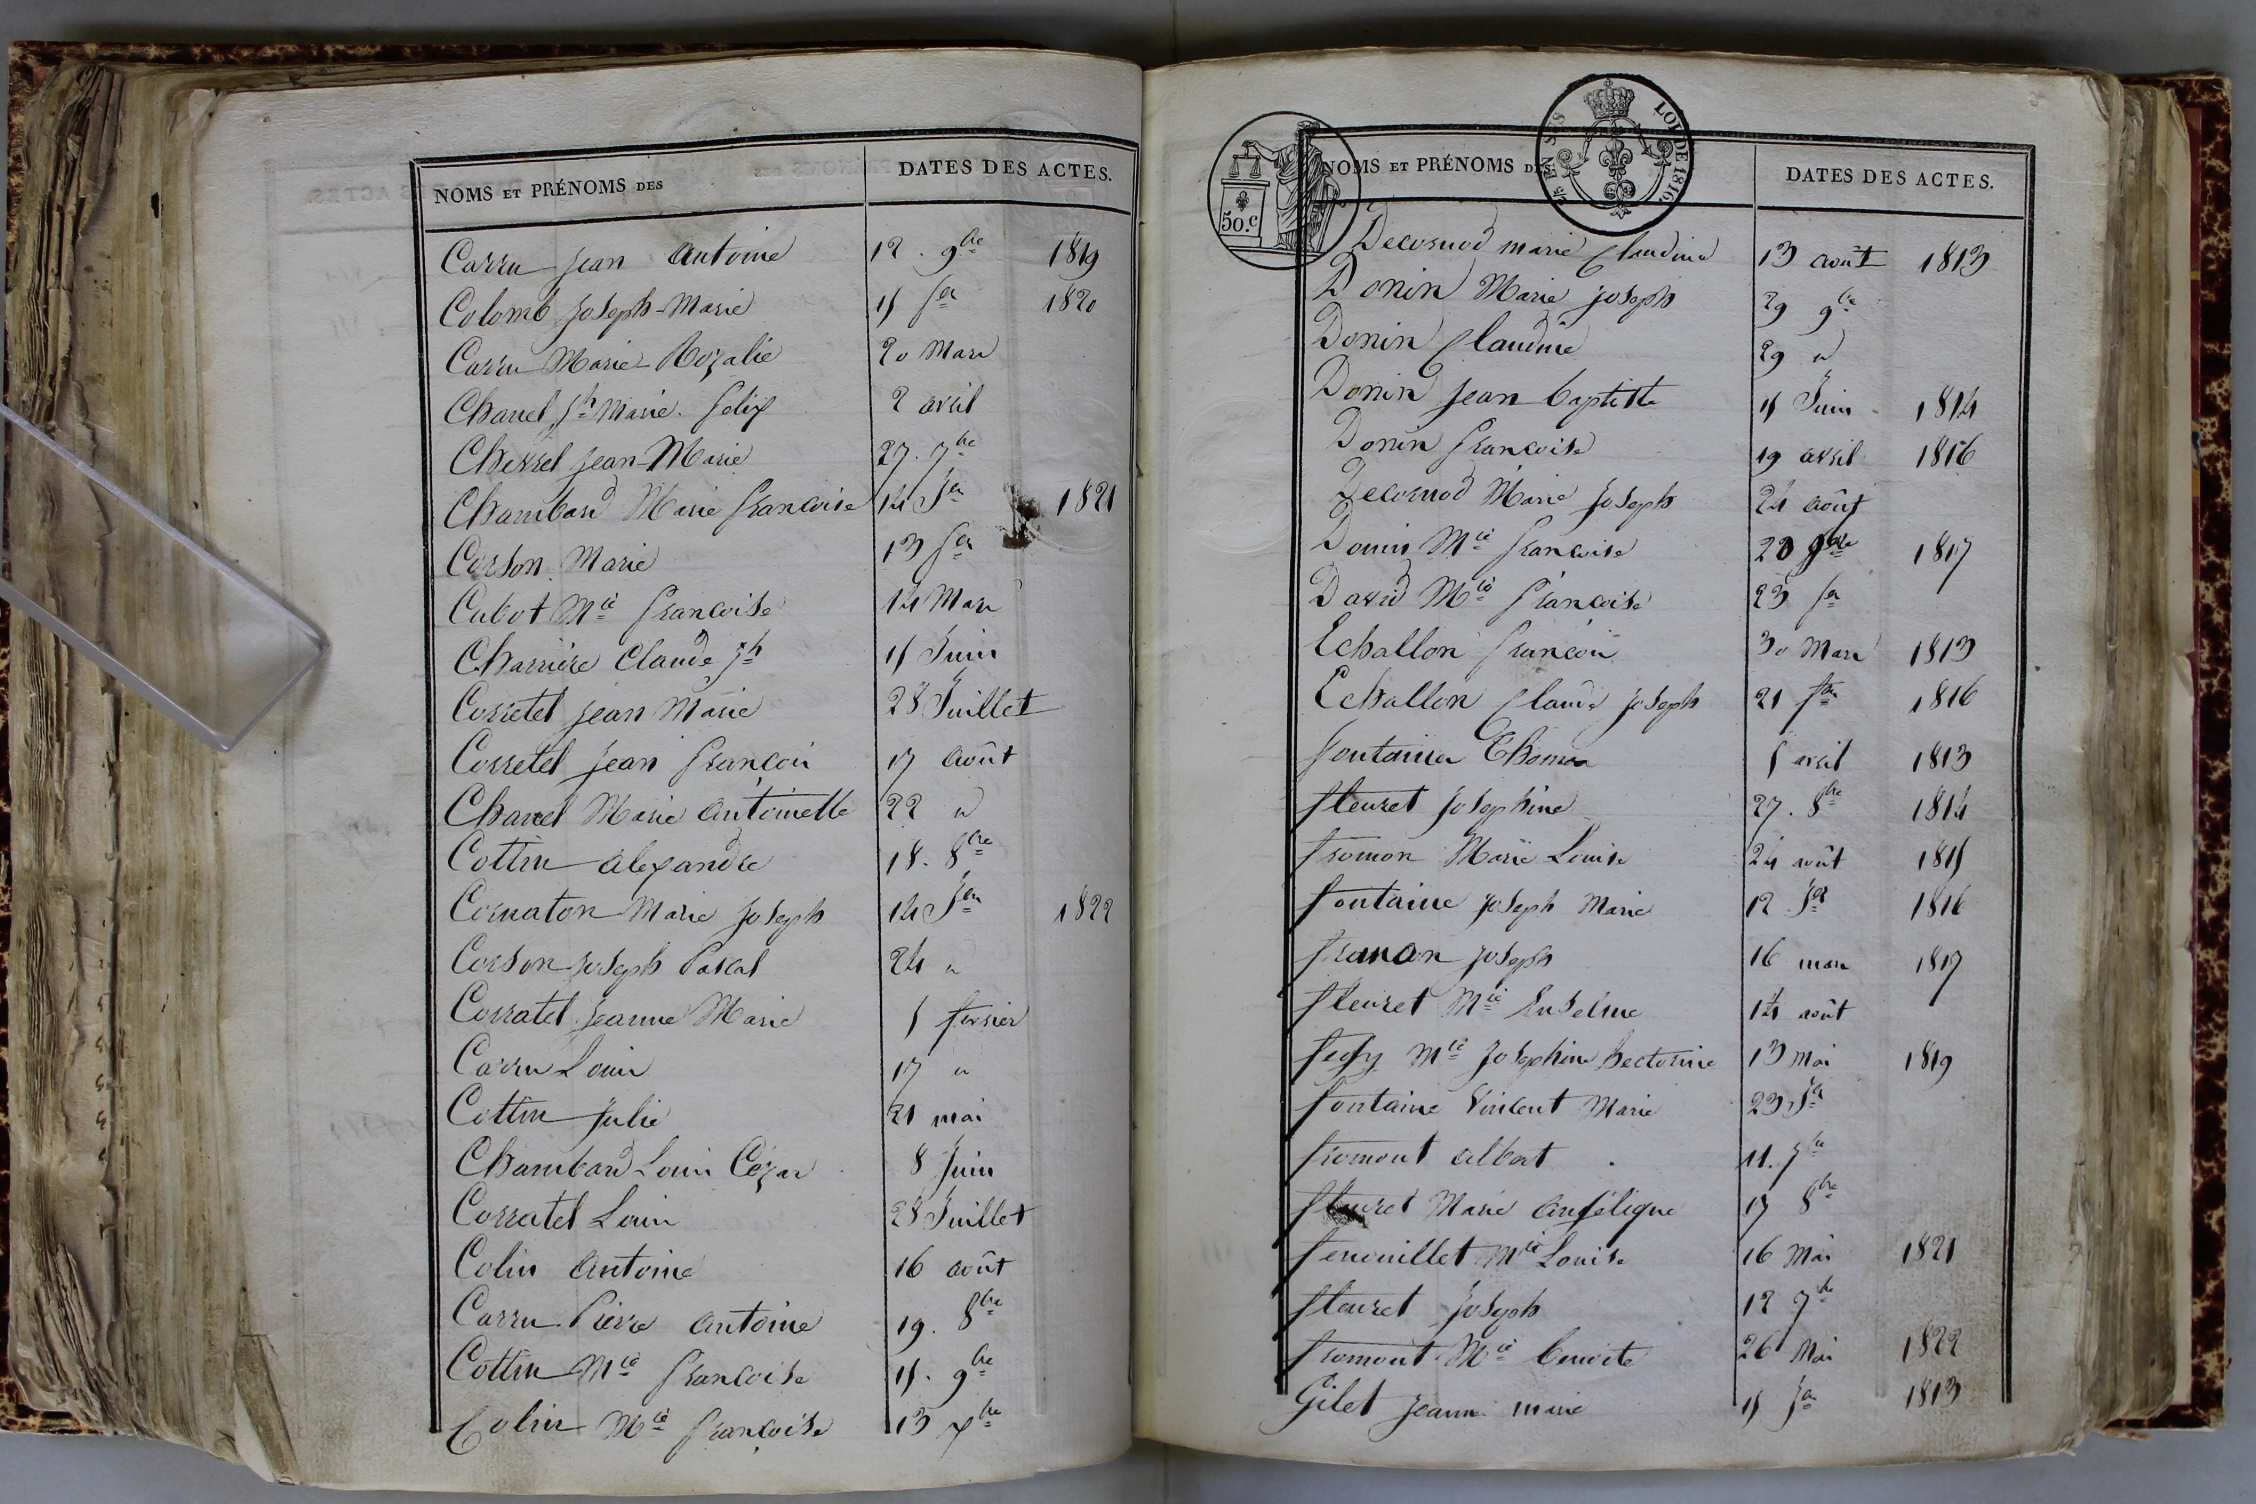 NOMS ET PRÉNOMS DES DATES DES ACTES.
Carru Jean Antoine 12. 9bre 1819
Colomb Joseph-Marie 15 Jer 1820
Carru Marie Rozalie 20 Mars
Chanel Jh Marie Felix 2 avril
Chevrel Jean-Marie 27. 7bre
Chambard Marie Françoise 14 Jer 1821
Corson Marie 13 fer
Cubot Mie Françoise 14 Mars
Charrière Claude Jh 15 Juin
Corretel Jean Marie 28 Juillet
Corretel Jean François 17 août
Chanel Marie Antoinette 22 "
Cottin Alexandre 18. 8bre
Cornaton Marie Joseph 14 Jer 1822
Corson Joseph Pascal 24 "
Corratel Jeanne Marie 5 fevrier
Carru Louis 17 "
Cottin Julie 21 mai
Chambard Louis Cézar 8 Juin
Corratel Louis 28 Juillet
Colin Antoine 16 août
Carru Pierre Antoine 19. 8bre
Cottin Mie Françoise 15. 9bre
Colin Mie Françoise 13 xbre
50.c
LOI DE 1816.
NOMS ET PRÉNOMS DES DATES DES ACTES.
Decornod marie Claudine 13 août 1813
Donin Marie Joseph 29 9bre
Donin Claudine 29 "
Donin Jean baptiste 15 Juin 1814
Donin Françoise 19 avril 1816
Decornod Marie Joseph 24 août
Donin Mie Françoise 1817
David Mie Françoise 23 fer
Echallon François 30 Mars 1813
Echallon Claude Joseph 21 1816
Fontaine Thomas 5 avril 1813
Fleuret Josephine 27. 8bre 1814
Fromon Marie Louise 24 août 1815
Fontaine Joseph Marie 12 Jer 1816
Fromon Joseph 16 mars 1817
Fleuret Mie août
Mie Josephine 13 Mai 1819
Fontaine Vincent Marie 23 Jer
Fromont Albert 11. 7bre
Fleuret Marie Angélique 17 8bre
Fenouillet Mie Louise 16 Mai 1821
Fleuret Joseph 12 7bre
Fromont Mie benoite 26 Mai 1822
Gilet Jeanne marie 15 Jer 1813